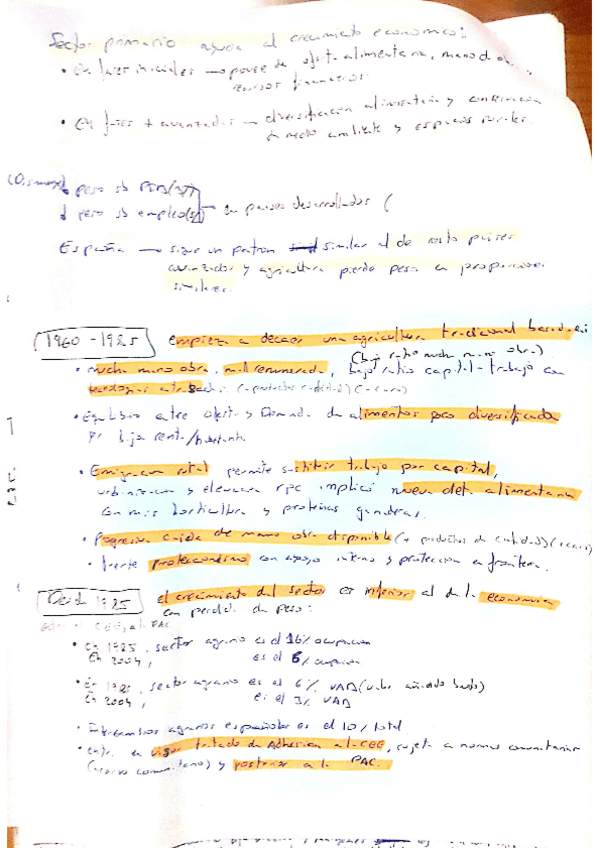 Sector primario ayuda al crecimiento económico:
• En fases iniciales → provee de oferta alimentaria, mano de
recursos financieros.
• En fases + avanzadas → diversificación alimentaria y conservación
de medio ambiente y espacios rurales.
↓ peso sb PIB
↓ peso sb empleo → en países desarrollados (
España → sigue un patrón similar al de resto países
avanzados y agricultura pierde peso en proporciones
similares.
1960 - 1985 empieza a decaer una agricultura tradicional basada en
(bajo ratio mucha mano obra)
• mucha mano obra, mal remunerada, bajo ratio capital-trabajo con
tecnologías atrasadas
• Equilibrio entre oferta y Demanda de alimentos poco diversificada
baja renta/habitante
• Emigración rural permite sustituir trabajo por capital,
urbanización y elevación rpc implicó nueva det. alimentaria
con más horticultura y proteínas ganaderas.
• Progresiva caída de mano obra disponible (+ productos de calidad)
• fuerte proteccionismo con apoyo interno y protección en frontera.
Desde 1985 el crecimiento del sector es inferior al de la economía
con pérdida de peso:
CEE, a la PAC.
• En 1985, sector agrario es el 16% ocupación
En 2004, es el 6% ocupación
• En 1985, sector agrario es el 6% VAB (valor añadido bruto)
En 2004, es el 3% VAB
• Intercambios agrarios españoles es el 10% total.
• entr. en vigor tratado de Adhesión a la CEE, sujeta a normas comunitarias
(acervo comunitario) y posterior a la PAC.